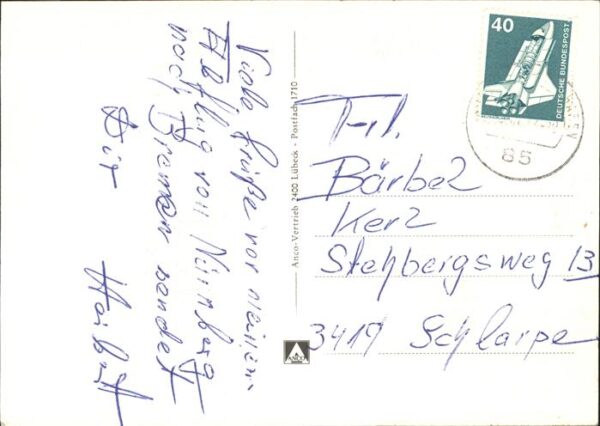 Viele Grüße vor meinen
Abflug von Nürnberg
nach Bremen sendet
Dir
40
DEUTSCHE BUNDESPOST
85
Anco-Vertrieb 2400 Lübeck - Postfach 1710
ANCO
Frl.
Bärbel
Kerl
Stehbergsweg 13
3419 Schlarpe